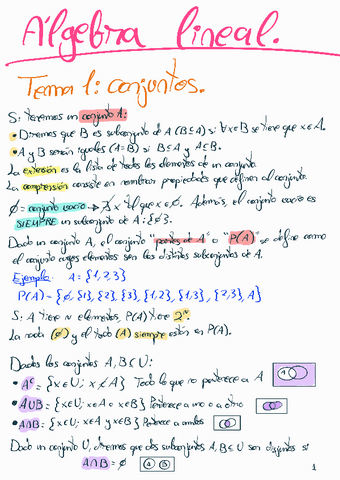 Álgebra lineal.
Tema 1: conjuntos.
Si tenemos un conjunto A:
• Diremos que B es subconjunto de A (B⊆A) si ∀x∈B se tiene que x∈A.
• A y B serán iguales (A=B) si B⊆A y A⊆B.
La extensión es la lista de todos los elementos de un conjunto.
La comprensión consiste en nombrar propiedades que definen al conjunto.
∅ = conjunto vacío → ∄x tq x∈∅. Además, el conjunto vacío es
SIEMPRE un subconjunto de A: {∅}.
Dado un conjunto A, el conjunto "partes de A" o "P(A)" se define como
el conjunto cuyos elementos son los distintos subconjuntos de A.
Ejemplo: A = {1,2,3}
P(A) = {∅, {1}, {2}, {3}, {1,2}, {1,3}, {2,3}, A}
Si A tiene n elementos, P(A) tiene 2ⁿ.
La nada (∅) y el todo (A) siempre están en P(A).
Dados los conjuntos A, B⊆U:
• Aᶜ = {x∈U; x∉A} Todo lo que no pertenece a A
• A∪B = {x∈U; x∈A o x∈B} Pertenece a uno o a otro
• A∩B = {x∈U; x∈A y x∈B} Pertenece a ambos
Dado un conjunto U, diremos que dos subconjuntos A, B⊆U son disjuntos si
A∩B = ∅ A B
1